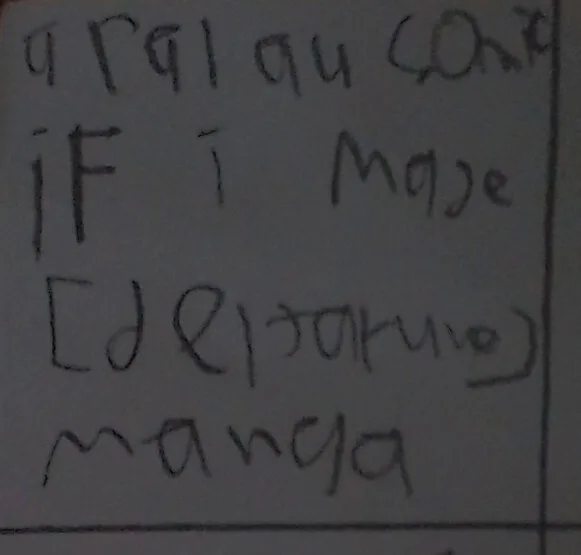 aral au comic
if i made
[deltarune]
manga